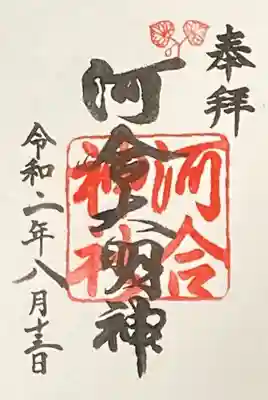 奉拝
河合大明神
河合
神社
令和二年八月十三日